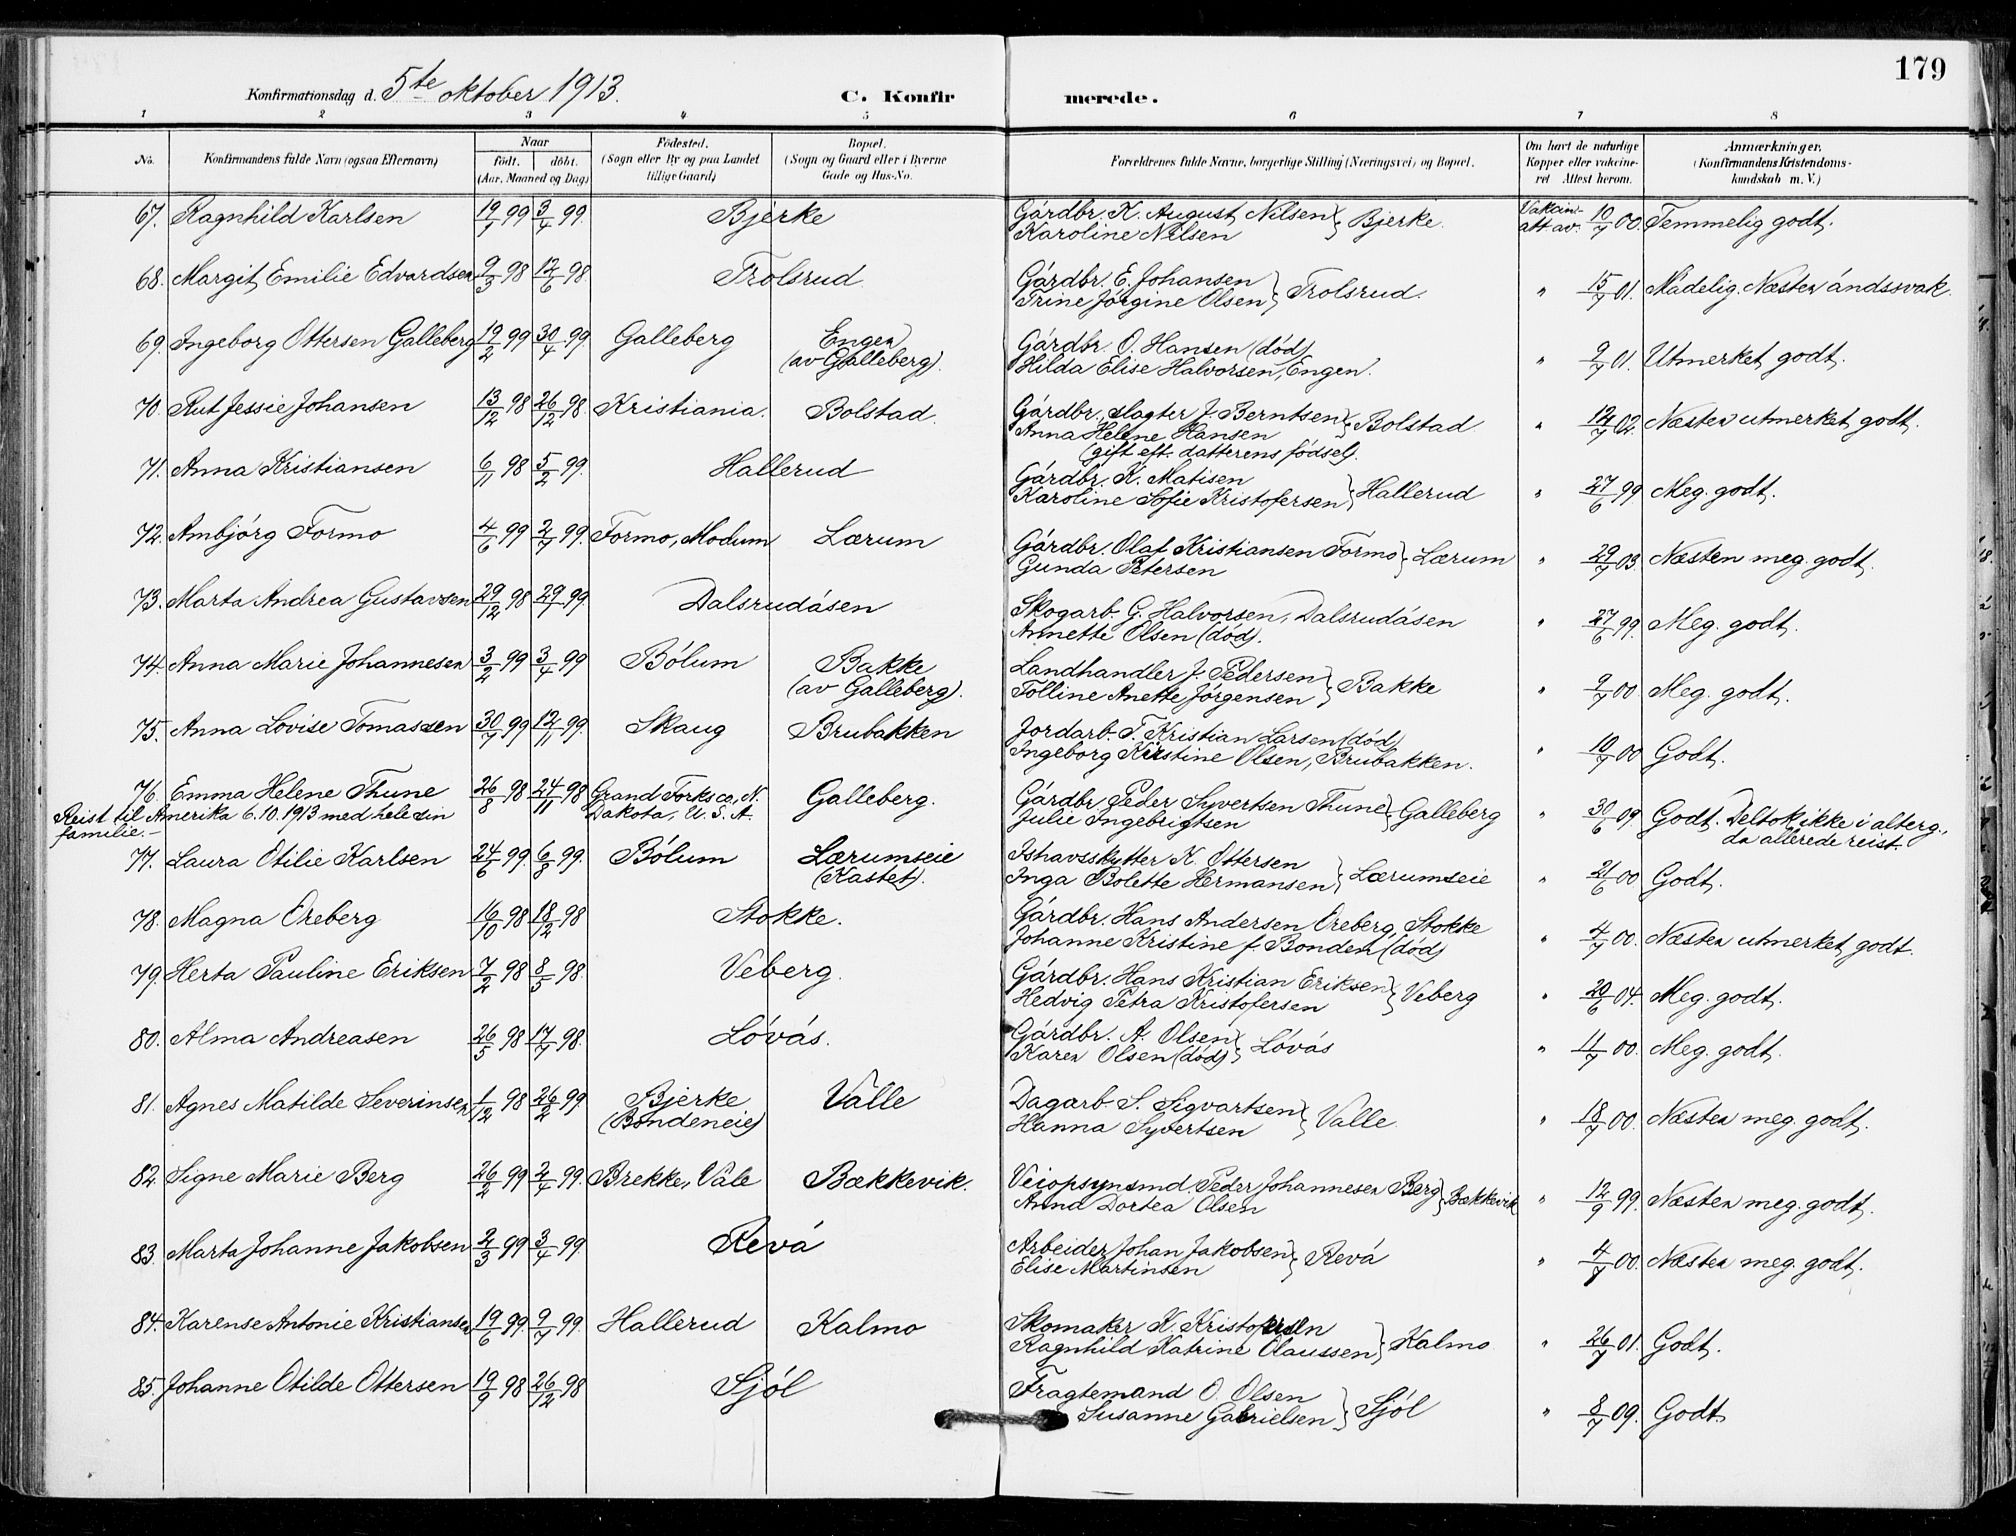 179
Konfirmationsdag d. 5te oktober 1913.
C. Konfirmerede.
1 2 3 4 5 6 7 8
No. Konfirmandens fulde Navn (ogsaa Efternavn) Naar født. døbt. (Aar, Maaned og Dag) Fødested. (Sogn eller By og paa Landet tillige Gaard) Bopæl. (Sogn og Gaard eller i Byerne Gade og Hus-No. Forældrenes fulde Navne, borgerlige Stilling (Næringsvei) og Bopæl. Om havt de naturlige Kopper eller vakcineret Attest herom. Anmærkninger, (Konfirmandens Kristendomskundskab m. V.)
67. Ragnhild Karlsen 19/1 99 3/4 99. Bjerke Gårdbr. K. August Nilsen } Bjerke. Vakcin- 10/7 00. Temmelig godt.
Karoline Nilsen att av.
68. Margit Emilie Edvardsen 9/3 98 12/6 98. Trolsrud Gårdbr. E. Johansen } Trolsrud. " 15/7 01. Mådelig. Næsten åndssvak.
Trine Jørgine Olsen
69. Ingeborg Ottersen Galleberg 19/2 99 30/4 99. Galleberg Engen Gårdbr. O. Hansen (død) " 9/7 01. Utmerket godt.
(av Galleberg). Hilda Elise Halvorsen, Engen.
70. Rut Jessie Johansen 13/12 98 26/12 98. Kristiania. Bolstad. Gårdbr., slagter J. Berntsen } Bolstad " 12/7 02. Næsten utmerket godt.
Anna Helene Hansen
(gift eft. datterens fødsel).
71. Anna Kristiansen 6/11 98 5/2 99. Hallerud Gårdbr. K. Matisen } Hallerud " 27/6 99 Meg. godt.
Karoline Sofie Kristofersen
72. Ambjørg Formo 4/6 99 2/7 99. Formo, Modum Lærum Gårdbr. Olaf Kristiansen Formo } Lærum " 29/7 03. Næsten meg. godt.
Gunda Petersen
73. Marta Andrea Gustavsen 29/12 98 29/1 99. Dalsrudåsen Skogarb. G. Halvorsen, Dalsrudåsen " 27/6 99. Meg. godt.
Annette Olsen (død).
74. Anna Marie Johannesen 3/2 99 3/4 99 Bólum Bakke Landhandler J. Pedersen } Bakke " 9/7 00. Meg. godt.
(av Galleberg). Tolline Anette Jørgensen
75. Anna Lovise Tomassen 30/7 99 12/11 99. Skaug Brubakken Jordarb. T. Kristian Larsen (død) " 10/7 00 Godt.
Ingeborg Kristine Olsen, Brubakken.
76. Emma Helene Thune 26/8 98 24/11 98 Grand Forks co, N. Galleberg. Gårdbr. Peder Syvertsen Thune } Galleberg " 30/6 09. Godt. Deltok ikke i alterg.,
Reist til Amerika 6.10.1913 med hele sin Dakota, U. S. A. Julie Ingebrigtsen da allerede reist.
familie.-
77. Laura Otilie Karlsen 24/6 99. 6/8 99. Bólum Lærumseie Ishavsskytter K. Ottersen } Lærumseie " 21/6 00 Godt.
(Kastet). Inga Bolette Hermansen
78. Magna Oreberg 16/10 98 18/12 98 Stokke. Gårdbr. Hans Andersen Oreberg, Stokke " 4/7 00. Næsten utmerket godt.
Johanne Kristine f. Bonden (død)
79. Herta Pauline Eriksen 7/2 98 8/5 98. Veberg. Gårdbr. Hans Kristian Eriksen } Veberg " 20/6 04. Meg. godt.
Hedvig Petra Kristofersen
80. Alma Andreasen 26/5 98 17/7 98. Lóvås. Gårdbr. A. Olsen } Lóvås " 11/7 00. Meg. godt.
Karen Olsen (død)
81. Agnes Matilde Severinsen 1/12 98 26/2 99 Bjerke Valle Dagarb. S. Sigvartsen } Valle. " 18/7 00. Næsten meg. godt.
(Bondeneie) Hanna Syvertsen
82. Signe Marie Berg 26/2 99 2/4 99. Brekke, Våle Bækkevik. Veiopsynsmd. Peder Johannesen Berg } Bækkevik " 12/9 99. Næsten meg. godt.
Anna Dortea Olsen
83. Marta Johanne Jakobsen 2/3 99 3/4 99. Revå Arbeider Johan Jakobsen } Revå " 4/7 00. Næsten meg. godt.
Elise Martinsen
84. Karense Antonie Kristiansen 19/6 99. 9/7 99. Hallerud Kalmo Skomaker K. Kristofersen } Kalmo " 26/7 01. Godt.
Ragnhild Katrine Olaussen
85. Johanne Otilde Ottersen 19/9 98 26/12 98 Sjól Fragtemand O. Olsen } Sjól " 8/7 09. Godt
Susanne Gabrielsen